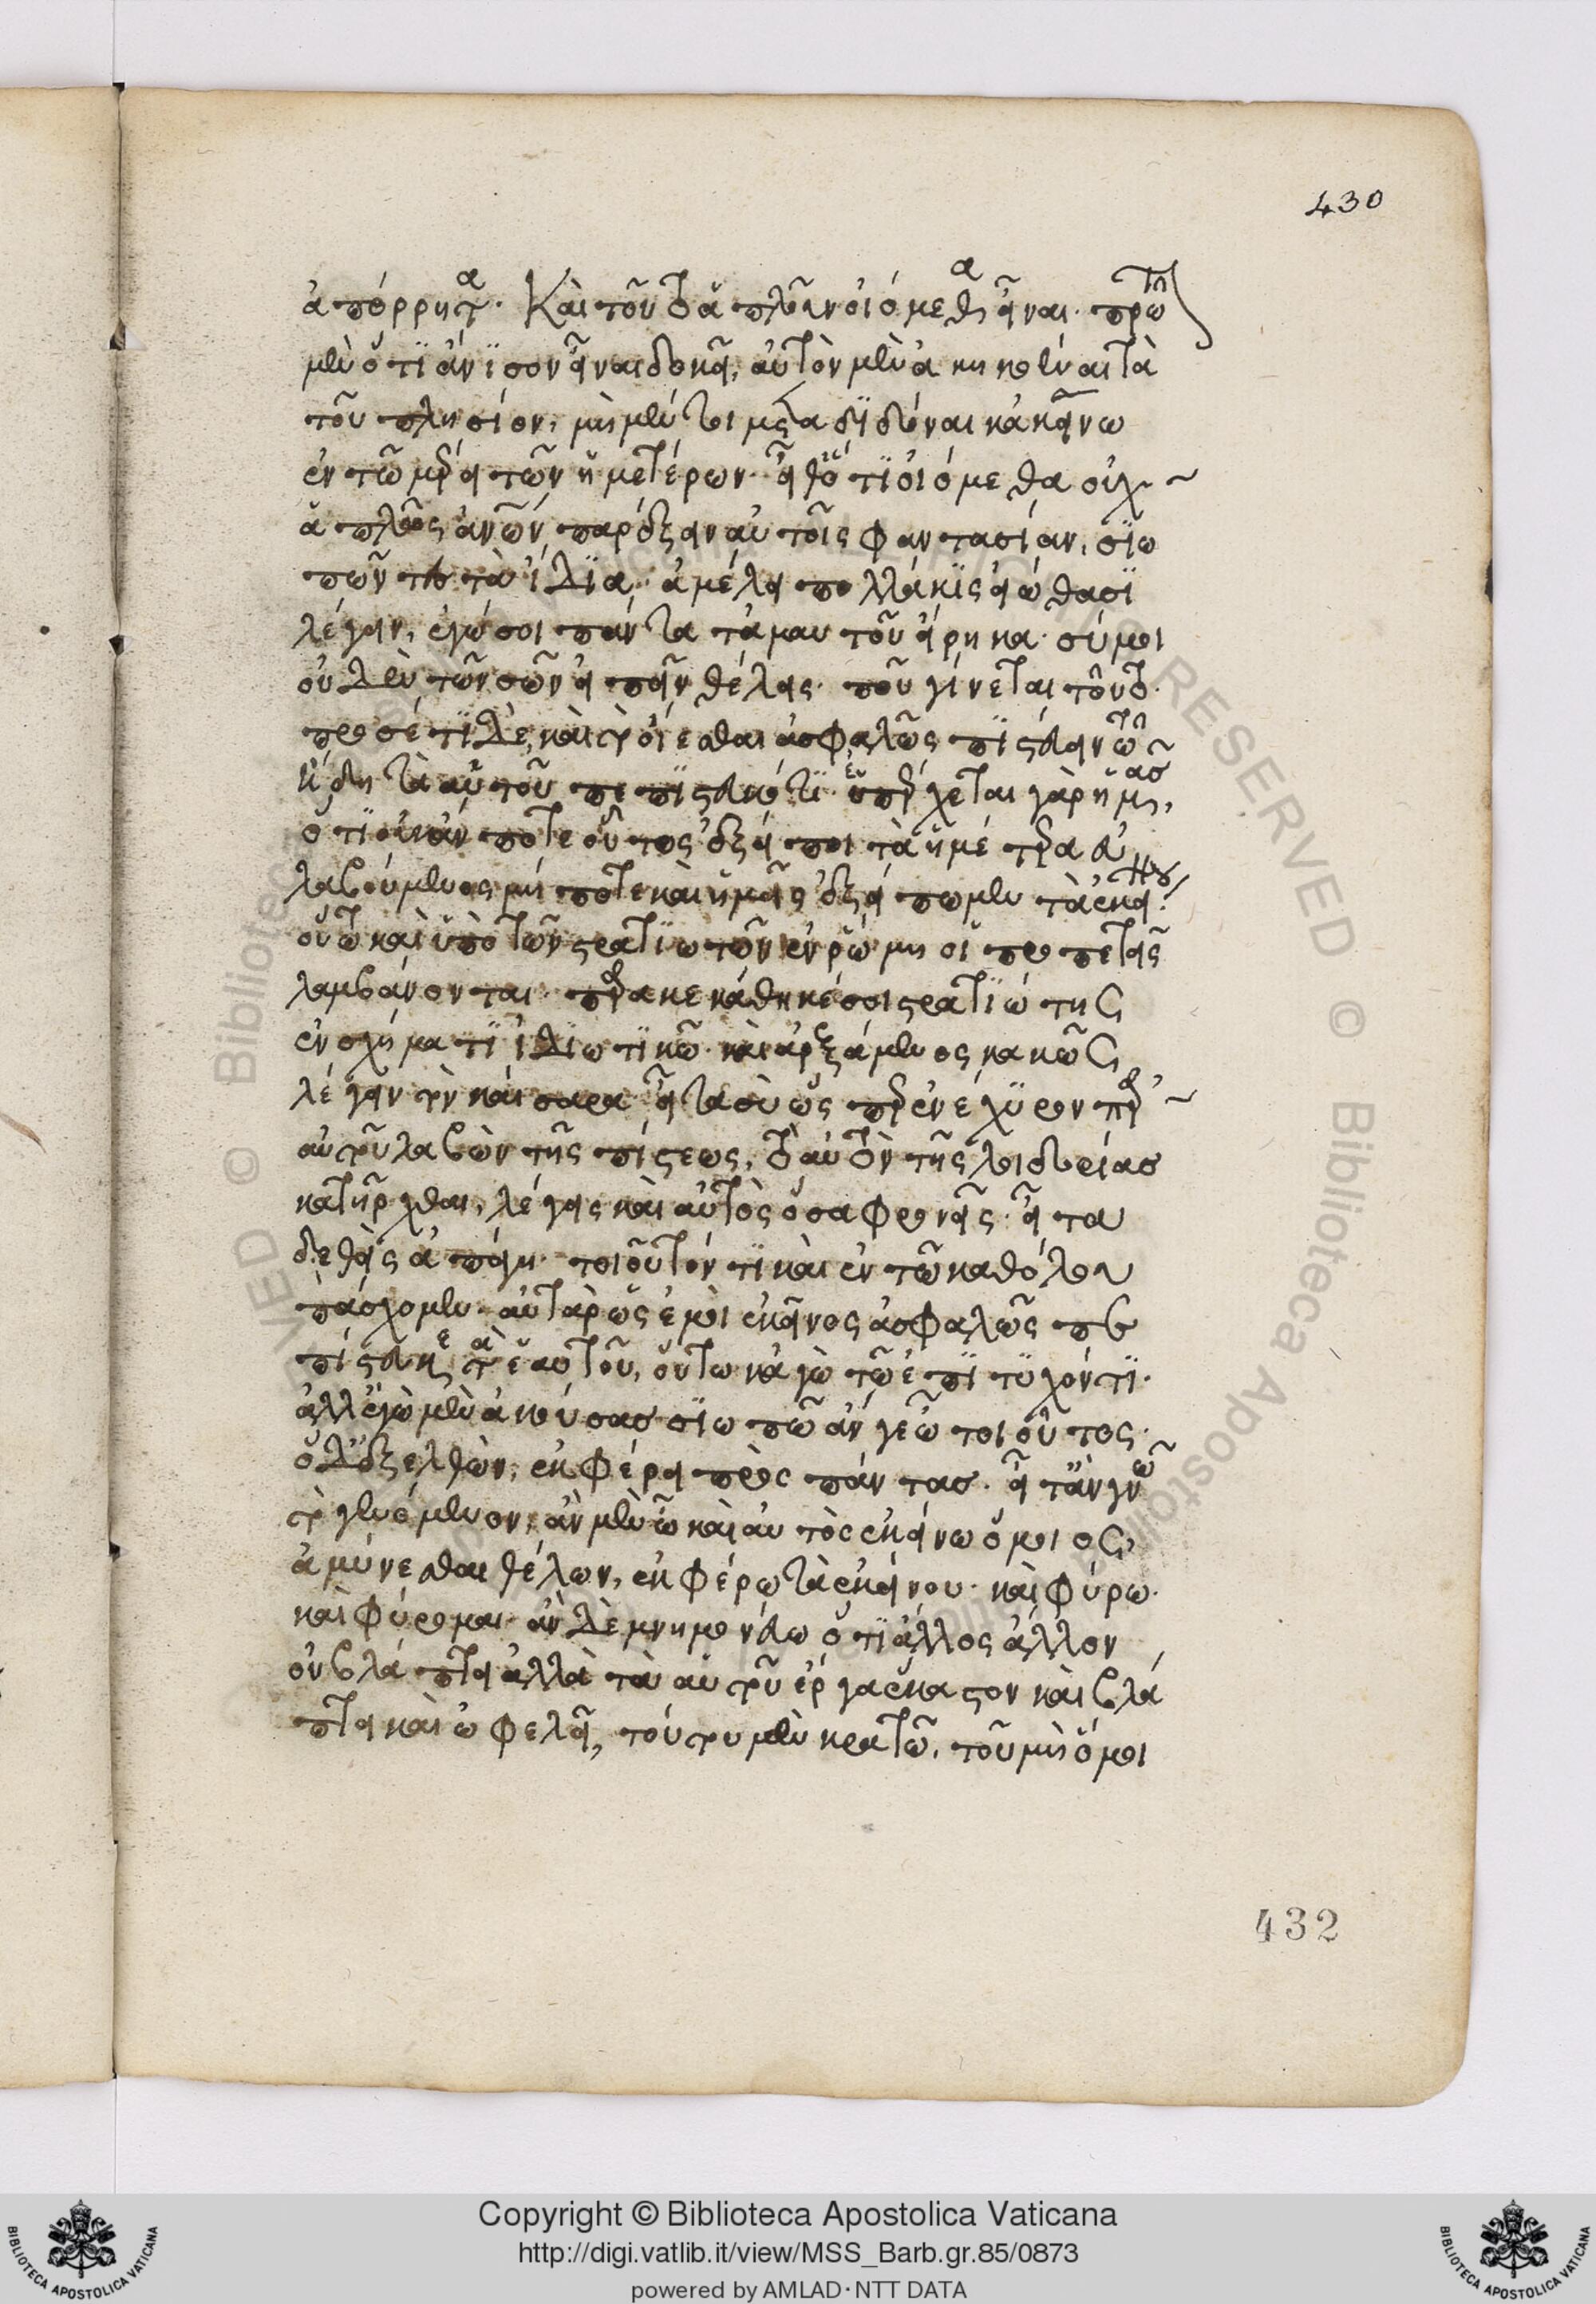 430
ἀπόρρητα. Καὶ τοῦτο ἁπλοῦν οἰόμεθα εἶναι. πρῶτον
μὲν ὅτι ἄνισον εἶναι δοκεῖ, αὐτὸν μὲν ἀκηκοέναι τὰ
τοῦ πλησίον, μὴ μέντοι μεταδιδόναι κἀκείνω
ἐν τῶ μέρει τῶν ἡμετέρων. εἶθ' ὅτι οἰόμεθα οὐχ
ἁπλῶς ἀνῶν παρέξειν αὐτοῖς φαντασίαν, σιω
πῶντες τὰ ἴδια. ἀμέλει πολλάκις εἰώθασι
λέγειν, ἐγώ σοι πάντα τἀμαυτοῦ εἴρηκα. σύ μοι
οὐδὲν τῶν σῶν εἰπεῖν θέλεις. ποῦ γίνεται τοῦτο.
πρὸς ἔτι δὲ, καὶ τὸ οἴεσθαι ἀσφαλῶς πιστεύειν τῶ
ἤδη τὰ αὑτοῦ πεπιστευκότι. ὑπέρχεται γὰρ ἡμᾶς,
ὅτι οὐκ ἄν ποτε οὗτος ἐξείποι τὰ ἡμέτερα εὐ
λαβούμενος μή ποτε καὶ ἡμεῖς ἐξείπωμεν τὰ ἐκείνου.
οὕτω καὶ ὑπὸ τῶν στρατιωτῶν ἐν ῥώμη οἱ προπετεῖς
λαμβάνονται. παρακεκάθηκέ σοι στρατιώτης
ἐν σχήματι ἰδιωτικῶ. καὶ ἀρξάμενος κακῶς
λέγειν τὸν καίσαρα. εἶτα σὺ ὡς περ ἐνέχυρον παρ'
αὐτοῦ λαβὼν τῆς πίστεως, τὸ αὐτὸν τῆς λοιδορίας
κατῆρχθαι, λέγεις καὶ αὐτὸς ὅσα φρονεῖς. εἶτα
δεθεὶς ἀπάγη. τοιοῦτόν τι καὶ ἐν τῶ καθόλου
πάσχομεν. αὐτὰρ ὡς ἐμοὶ ἐκεῖνος ἀσφαλῶς πε
πίστευκε τὰ ἑαυτοῦ, οὕτω κἀγὼ τῶ ἐπιτυχόντι.
ἀλλ' ἐγὼ μὲν ἀκούσας σιωπῶ ἄν γε ὦ τοιοῦτος.
ὁ δ' ἐξελθὼν, ἐκφέρει πρὸς πάντας. εἶτ' ἂν γνῶ
τὸ γενόμενον, ἂν μὲν ὦ καὶ αὐτὸς ἐκείνω ὅμοιος,
ἀμύνεσθαι θέλων, ἐκφέρω τὰ ἐκείνου. καὶ φύρω.
καὶ φύρομαι. ἂν δὲ μνημονεύω ὅτι ἄλλος ἄλλον
οὐ βλάπτει ἀλλὰ τὰ αὑτοῦ ἔργα ἕκαστον καὶ βλά
πτει καὶ ὠφελεῖ, τούτου μὲν κρατῶ, τοῦ μὴ ὅμοι
432
Copyright © Biblioteca Apostolica Vaticana
http://digi.vatlib.it/view/MSS_Barb.gr.85/0873
powered by AMLAD·NTT DATA